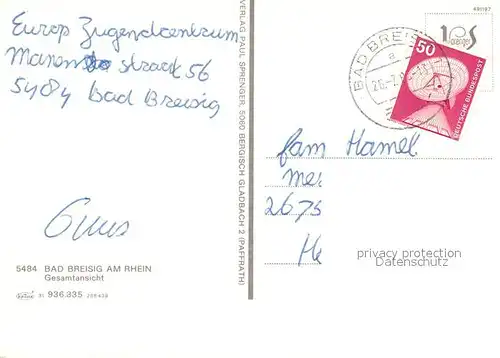 Europ Jugendcentrum
straat 56
5484 Bad Breisig
Guus
5484 BAD BREISIG AM RHEIN
Gesamtansicht
31 936.335
VERLAG PAUL SPRENGER, 5060 BERGISCH GLADBACH 2 (PAFFRATH)
491197
sprenger
BAD BREISIG
a
50
DEUTSCHE BUNDESPOST
fam Hamel
2675
He
privacy protection
Datenschutz